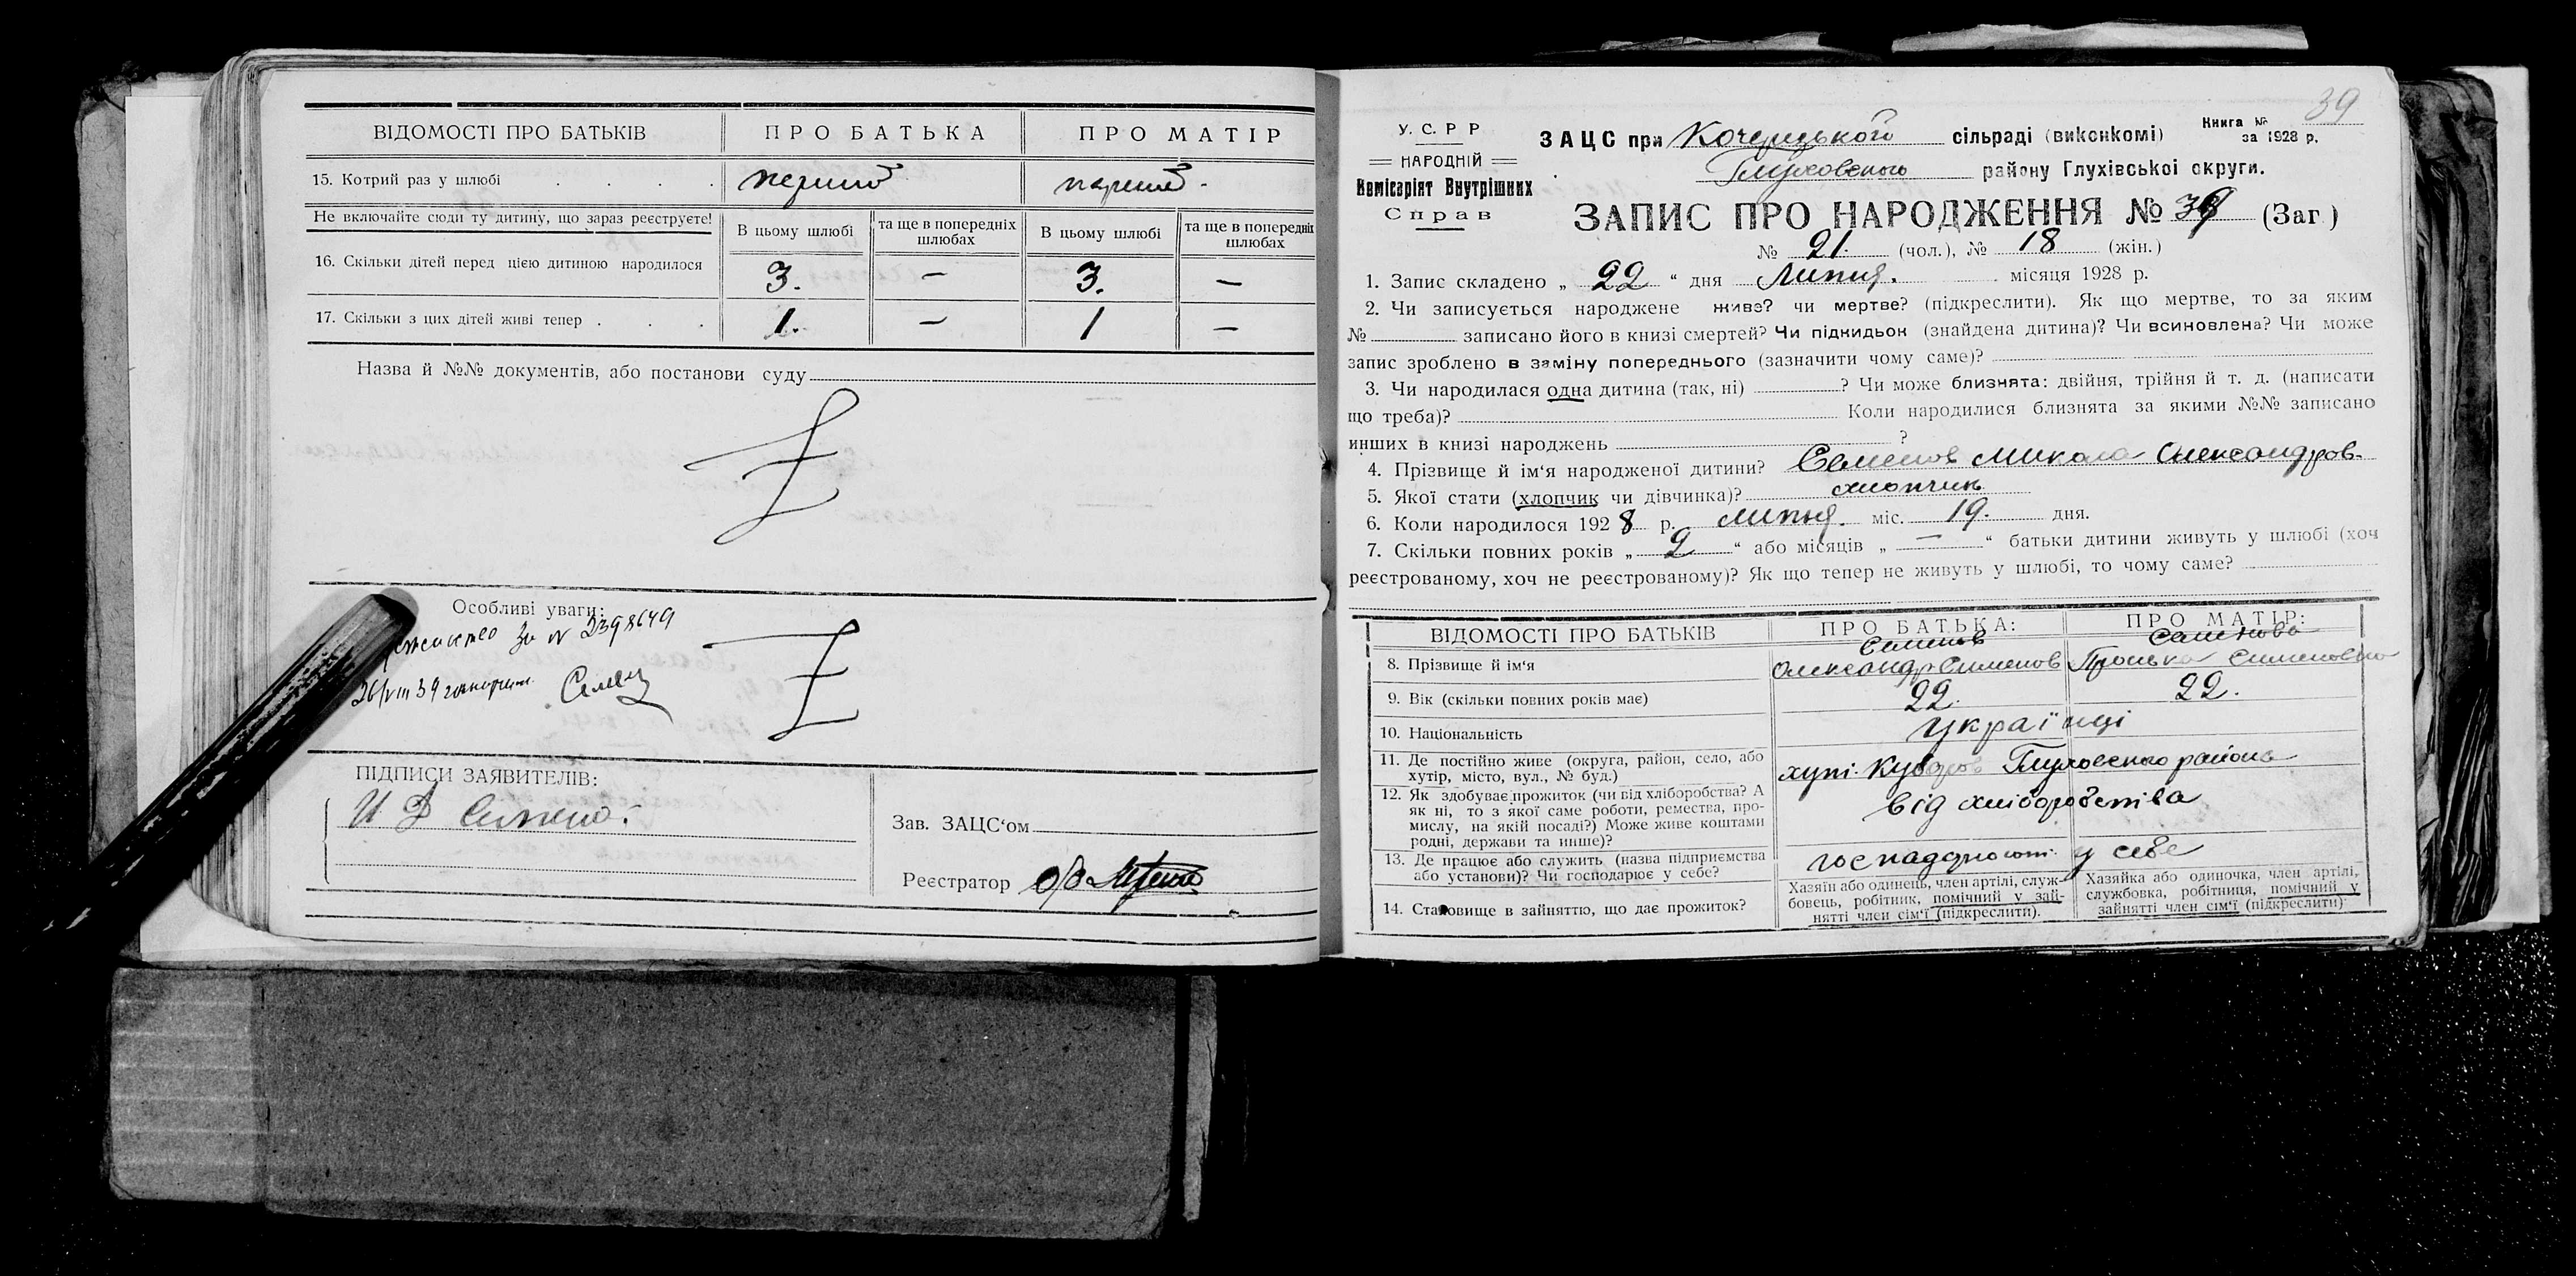 ВІДОМОСТІ ПРО БАТЬКІВ ПРО БАТЬКА ПРО МАТІР
15. Котрий раз у шлюбі . . . . перший перший.
Не включайте сюди ту дитину, що зараз реєструєте!
В цьому шлюбі та ще в попередніх шлюбах В цьому шлюбі та ще в попередніх шлюбах
16. Скільки дітей перед цією дитиною народилося 3. – 3. –
17. Скільки з цих дітей живі тепер . . . 1. – 1 –
Назва й №№ документів, або постанови суду
Особливі уваги:
за N 2398649
26/VIII 39
ПІДПИСИ ЗАЯВИТЕЛІВ:
И Д
Зав. ЗАЦС‘ом
Реєстратор
39
У. С. Р Р
НАРОДНІЙ
Комісаріят Внутрішніх
Справ
ЗАЦС при сільраді (виконкомі)
Книга №
за 1928 р.
Глуховського району Глухівської округи.
ЗАПИС ПРО НАРОДЖЕННЯ № 39 (Заг.)
№ 21. (чол.), № 18 (жін.)
1. Запис складено „ 22 “ дня Липня. місяця 1928 р.
2. Чи записується народжене живе? чи мертве? (підкреслити). Як що мертве, то за яким
№ записано його в книзі смертей? Чи підкидьок (знайдена дитина)? Чи всиновлена? Чи може
запис зроблено в заміну попереднього (зазначити чому саме)?
3. Чи народилася одна дитина (так, ні) ? Чи може близнята: двійня, трійня й т. д. (написати
що треба)? Коли народилися близнята за якими №№ записано
инших в книзі народжень ?
4. Прізвище й ім‘я народженої дитини? Семенов Микола Олександров
5. Якої стати (хлопчик чи дівчинка)? хлопчик
6. Коли народилося 1928 р. липня. міс. 19. дня.
7. Скільки повних років „ 2 “ або місяців „ – “ батьки дитини живуть у шлюбі (хоч
реєстрованому, хоч не реєстрованому)? Як що тепер не живуть у шлюбі, то чому саме?
ВІДОМОСТІ ПРО БАТЬКІВ ПРО БАТЬКА: ПРО МАТІР:
Семенов Семенова
8. Прізвище й ім‘я Олександр Сименов
9. Вік (скільки повних років має) 22. 22.
10. Національність українці
11. Де постійно живе (округа, район, село, або
хутір, місто, вул., № буд.) Глуховського района
12. Як здобуває прожиток (чи від хліборобства? А
як ні, то з якої саме роботи, ремества, про-
мислу, на якій посаді?) Може живе коштами
родні, держави та инше)?
від хліборобства
13. Де працює або служить (назва підприємства
або установи)? Чи господарює у себе?
у себе
14. Становище в зайняттю, що дає прожиток?
Хазяїн або одинець, член артілі, служ-
бовець, робітник, помічний у зай-
нятті член сім‘ї (підкреслити).
Хазяйка або одиночка, член артілі,
службовка, робітниця, помічний у
зайнятті член сім‘ї (підкреслити)